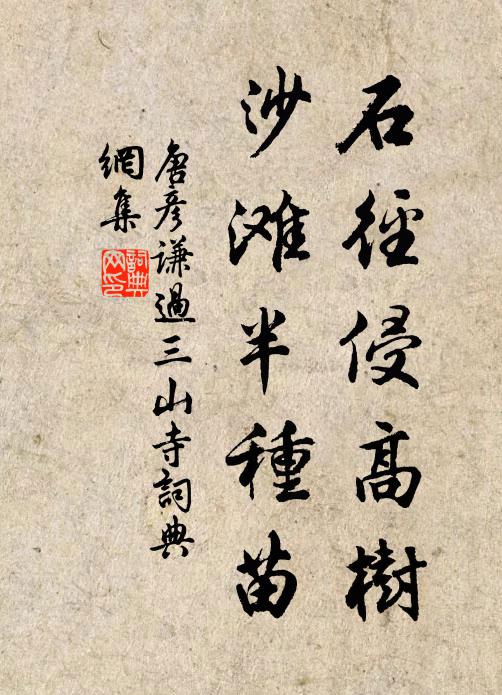 石徑侵高樹
沙滩半種苗
唐彦謙過三山寺詞典
網集
詞典
网印